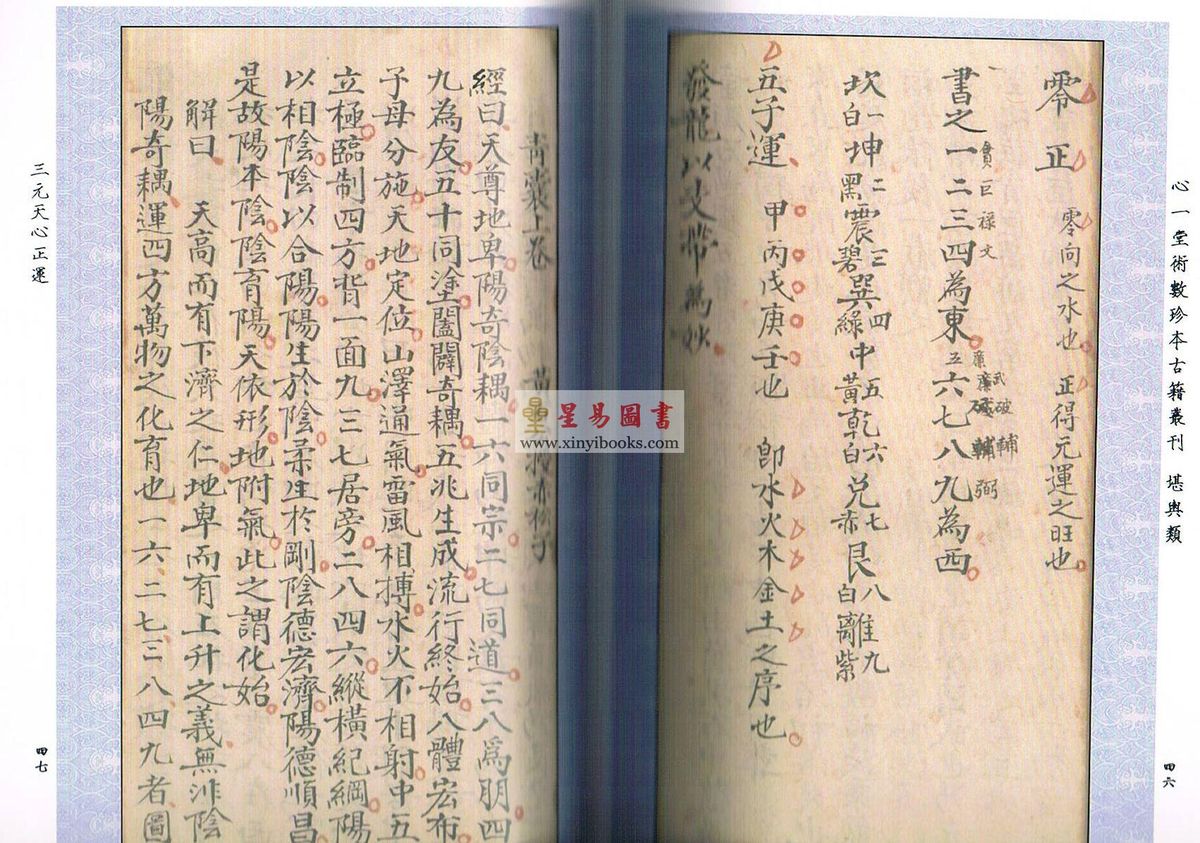 心一堂術數珍本古籍叢刊 堪輿類
四六
零正 零向之水也 正得元運之旺也
貪巨祿文
書之一二三四為東 五六七八九為西
廉武破輔弼
坎一白坤二黑震三碧巽四綠中五黃乾六白兌七赤艮八白離九紫
五子運 甲丙戊庚壬也 即水火木金土之序也
發龍以支帶為妙
星易圖書
www.xinyibooks.com
青囊上卷 黃 赤松子
經曰天尊地卑陽奇陰耦一六同宗二七同道三八為朋四
九為友五十同塗闔闢奇耦五兆生成流行終始八體宏布
子母分施天地定位山澤通氣雷風相搏水火不相射中五
立極臨制四方背一面九三七居旁二八四六縱橫紀綱陽
以相陰陰以合陽陽生於陰柔生於剛陰德宏濟陽德順昌
是故陽本陰陰育陽天依形地附氣此之謂化始
解曰 天高而有下濟之仁地卑而有上升之義無非陰
陽奇耦運四方萬物之化育也一六二七三八四九者圖
三元天心正運
四七